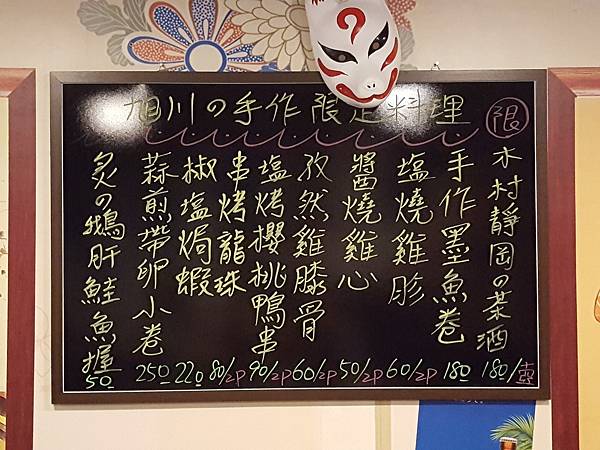 旭川の手作限定料理
限
木村靜岡の茶酒 180/壺
手作墨魚卷 180
塩燒雞胗 60/2P
醬燒雞心 50/2P
孜然雞膝骨 60/2P
塩烤櫻桃鴨串 90/2P
串烤龍珠 80/2P
椒塩焗蝦 220
蒜煎帶卵小卷 250
炙の鵝肝鮭魚握 50